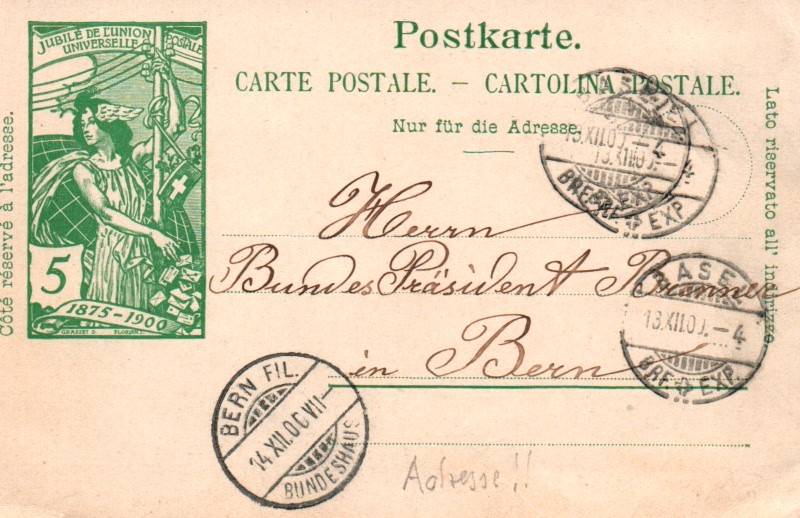 JUBILÉ DE L'UNION
POSTALE
UNIVERSELLE
5
1875-1900
GRASSET D.
FLORIAN
Côté réservé à l'adresse.
Postkarte.
CARTE POSTALE. — CARTOLINA POSTALE.
Nur für die Adresse.
Lato riservato all' indirizzo.
13.XII.00.-4
13.XII.00.-
BRF. EXP.
Herrn
BundesPräsident Brenner
in Bern
BASEL
13.XII.00.-4
BRF. EXP.
BERN FIL.
14.XII.00.VII-
BUNDESHAUS
Adresse!!